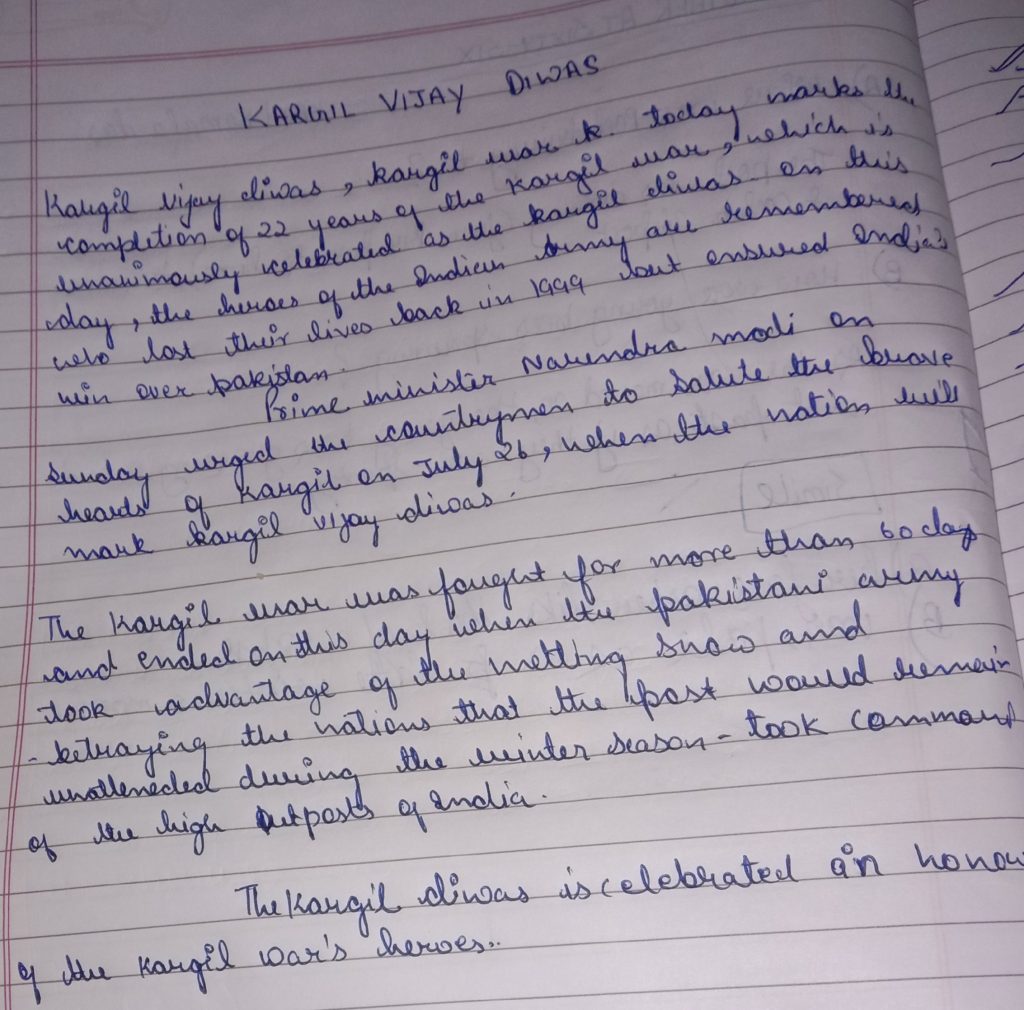 KARGIL VIJAY DIWAS
Kargil Vijay diwas, kargil war k. today marks the
completion of 22 years of the Kargil war, which is
unanimously celebrated as the kargil diwas on this
day, the heroes of the Indian Army are remembered
who lost their lives back in 1999 but ensured India's
win over pakistan.
Prime minister Narendra modi on
Sunday urged the countrymen to salute the brave
hearts of Kargil on July 26, when the nation will
mark kargil vijay diwas.
The Kargil war was fought for more than 60 days
and ended on this day when the pakistani army
took advantage of the melting snow and
- betraying the nations that the post would remain
unattended during the winter season - took command
of the high outposts of India.
The Kargil diwas is celebrated in honou
of the Kargil war's heroes..